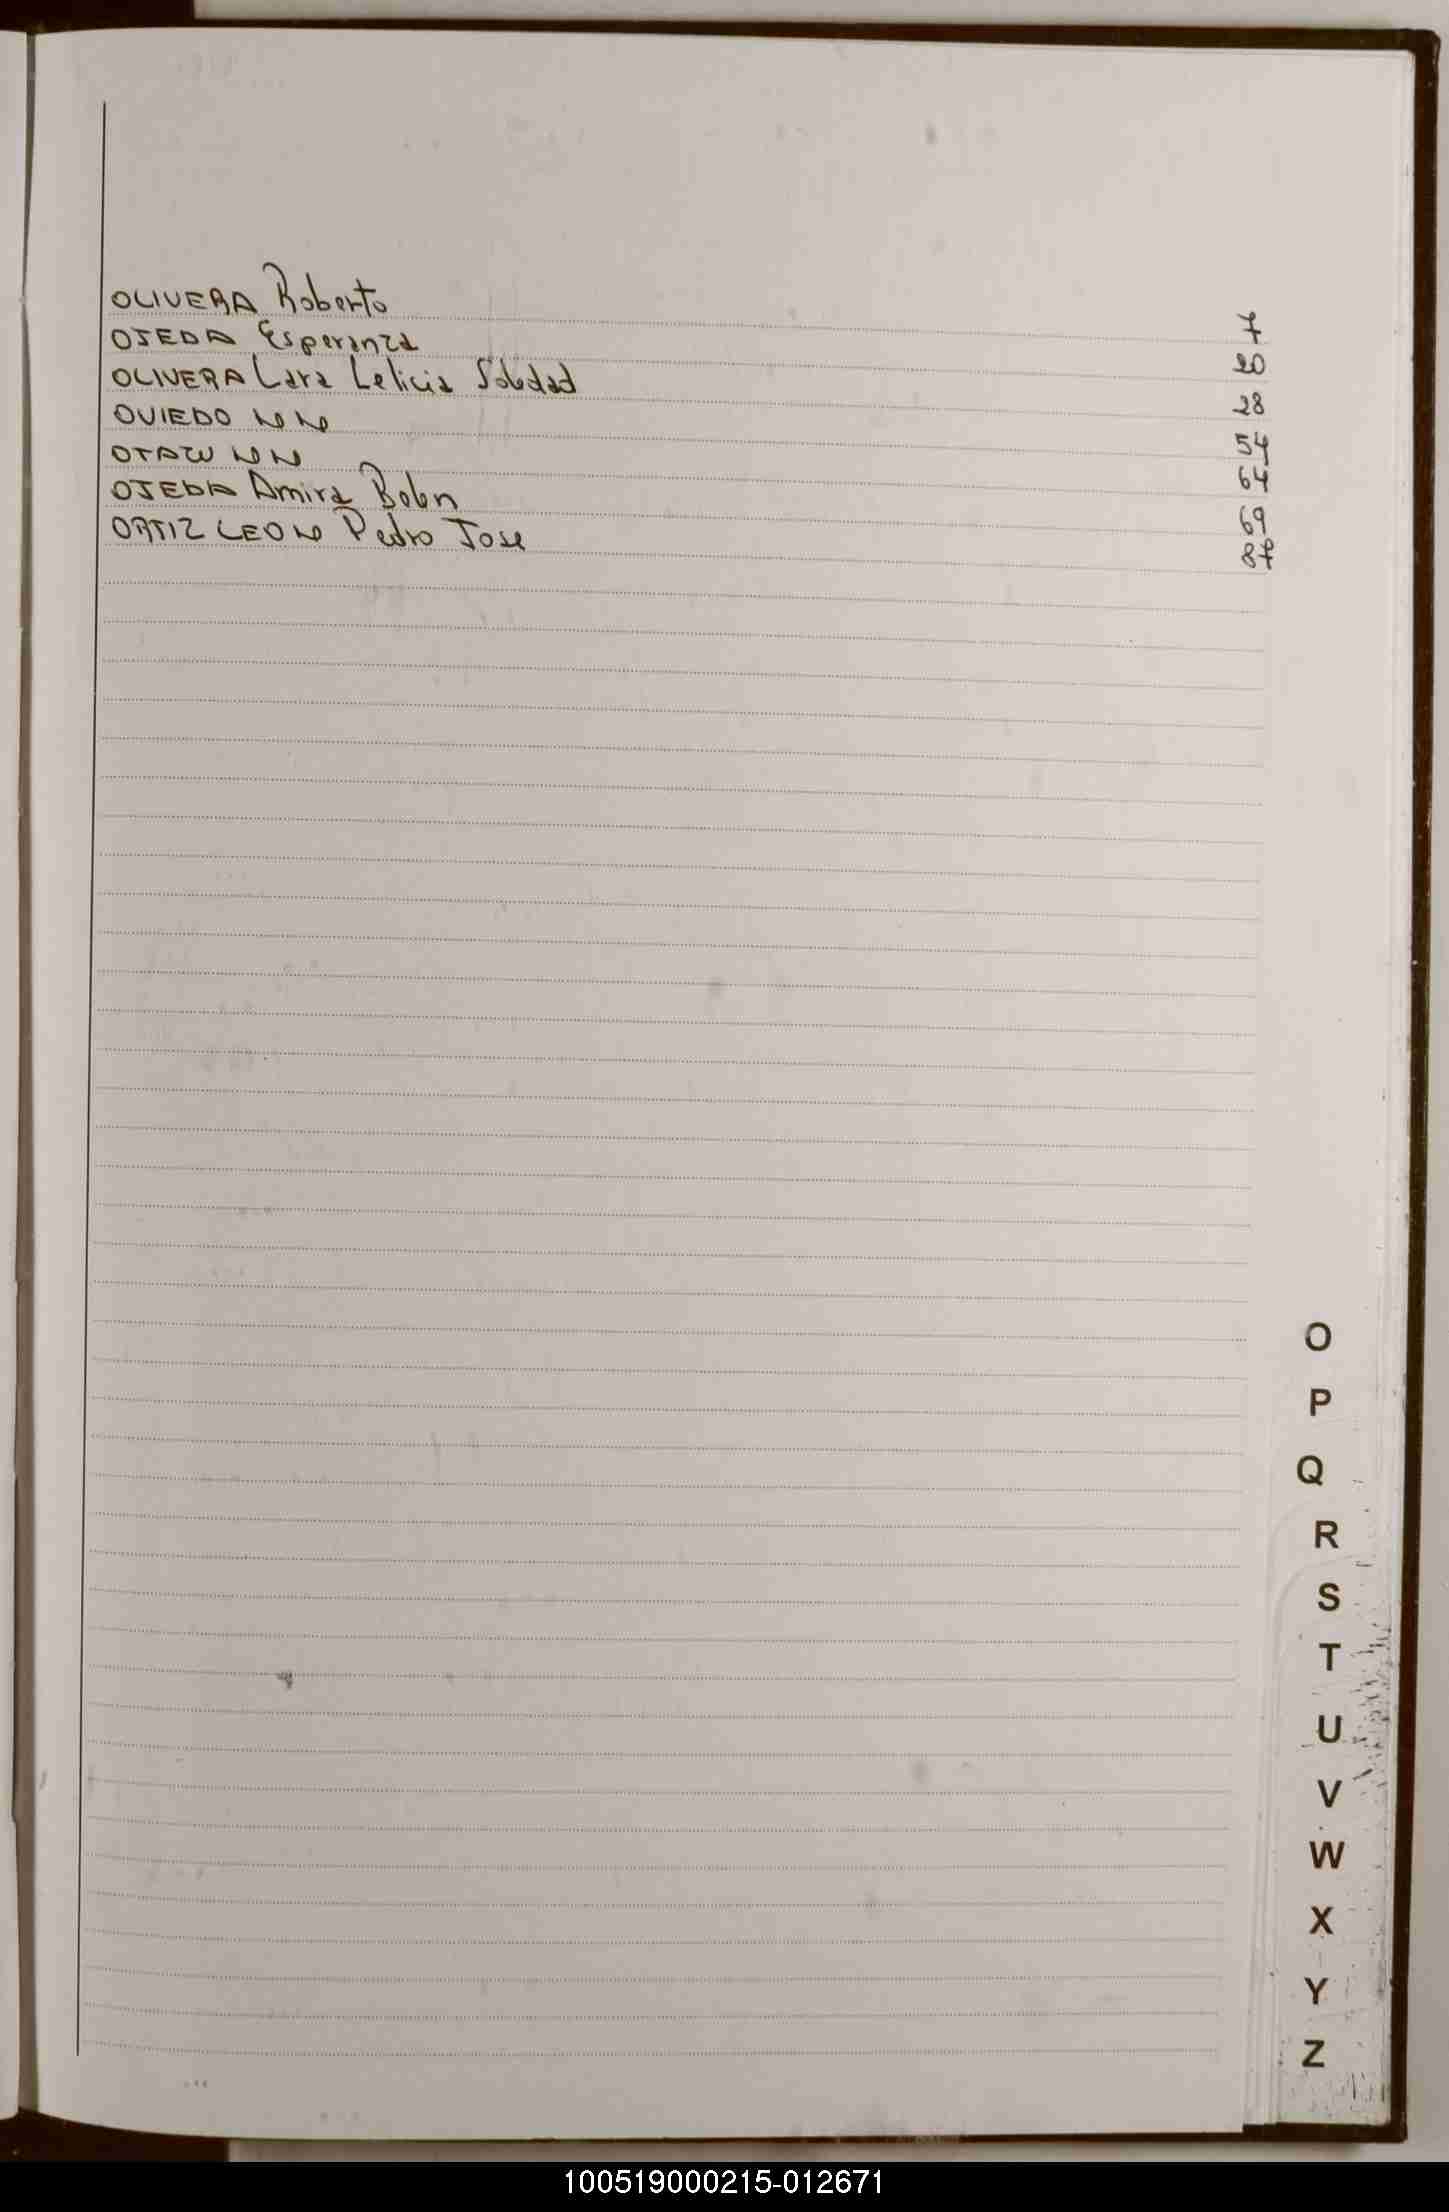 OLIVERA Roberto 7
OJEDA Esperanza 20
OLIVERA Lara Leticia Soledad 28
OVIEDO NN 54
OTAZU NN 64
OJEDA Amira Belen 69
ORTIZ LEON Pedro Jose 87
O
P
Q
R
S
T
U
V
W
X
Y
Z
100519000215-012671